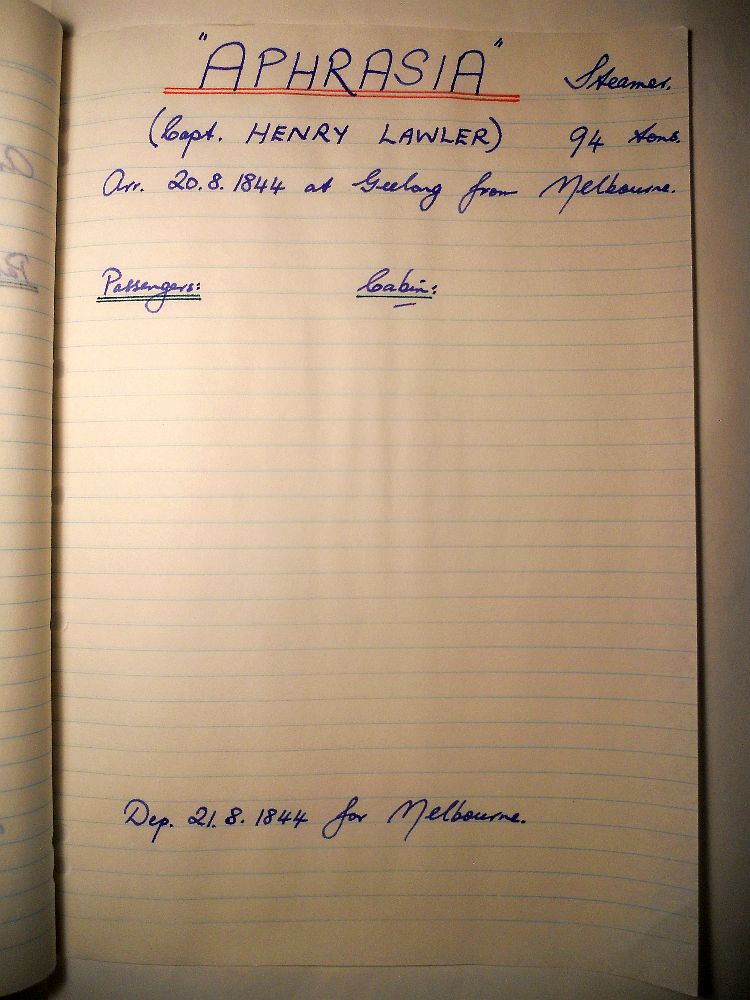 "APHRASIA" Steamer.
(Capt. HENRY LAWLER) 94 tons.
Arr. 20.8.1844 at Geelong from Melbourne.
Passengers: Cabin:
Dep. 21.8.1844 for Melbourne.